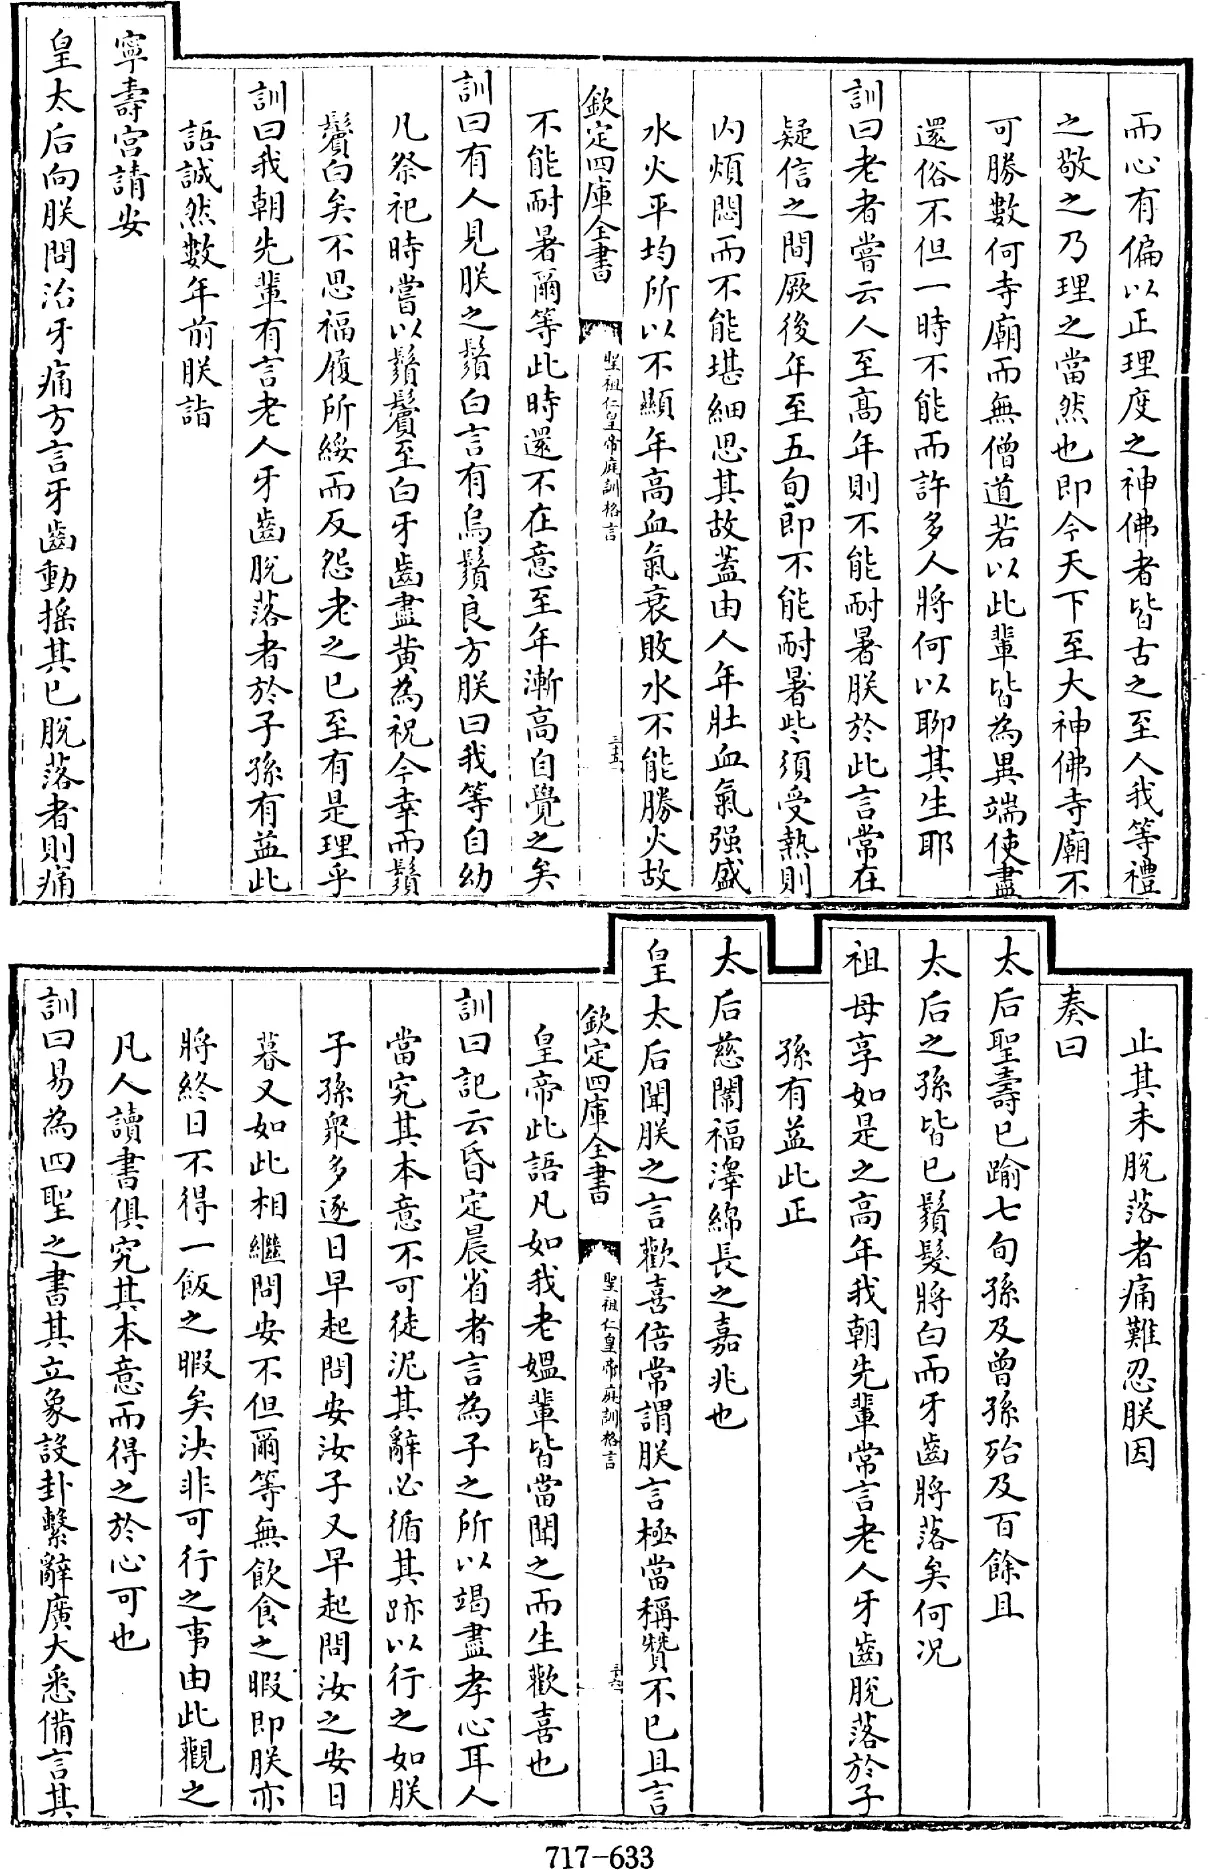 而心有偏以正理度之神佛者皆古之至人我等禮
之敬之乃理之當然也即今天下至大神佛寺廟不
可勝數何寺廟而無僧道若以此輩皆為異端使盡
還俗不但一時不能而許多人將何以聊其生耶
訓曰老者嘗云人至高年則不能耐暑朕於此言常在
疑信之間厥後年至五旬即不能耐暑些須受熱則
內煩悶而不能堪細思其故蓋由人年壯血氣强盛
水火平均所以不顯年高血氣衰敗水不能勝火故
欽定四庫全書
聖祖仁皇帝庭訓格言
三五
不能耐暑爾等此時還不在意至年漸高自覺之矣
訓曰有人見朕之鬚白言有烏鬚良方朕曰我等自幼
凡祭祀時嘗以鬚鬢至白牙齒盡黃為祝今幸而鬚
鬢白矣不思福履所綏而反怨老之已至有是理乎
訓曰我朝先輩有言老人牙齒脫落者於子孫有益此
語誠然數年前朕詣
寧壽宮請安
皇太后向朕問治牙痛方言牙齒動搖其已脫落者則痛
止其未脫落者痛難忍朕因
奏曰
太后聖壽已踰七旬孫及曾孫殆及百餘且
太后之孫皆已鬚髮將白而牙齒將落矣何況
祖母享如是之高年我朝先輩常言老人牙齒脫落於子
孫有益此正
太后慈闈福澤綿長之嘉兆也
皇太后聞朕之言歡喜倍常謂朕言極當稱贊不已且言
欽定四庫全書
聖祖仁皇帝庭訓格言
三六
皇帝此語凡如我老媼輩皆當聞之而生歡喜也
訓曰記云昏定晨省者言為子之所以竭盡孝心耳人
當究其本意不可徒泥其辭必循其跡以行之如朕
子孫衆多逐日早起問安汝子又早起問汝之安日
暮又如此相繼問安不但爾等無飲食之暇即朕亦
將終日不得一飯之暇矣決非可行之事由此觀之
凡人讀書俱究其本意而得之於心可也
訓曰易為四聖之書其立象設卦繫辭廣大悉備言其
717-633